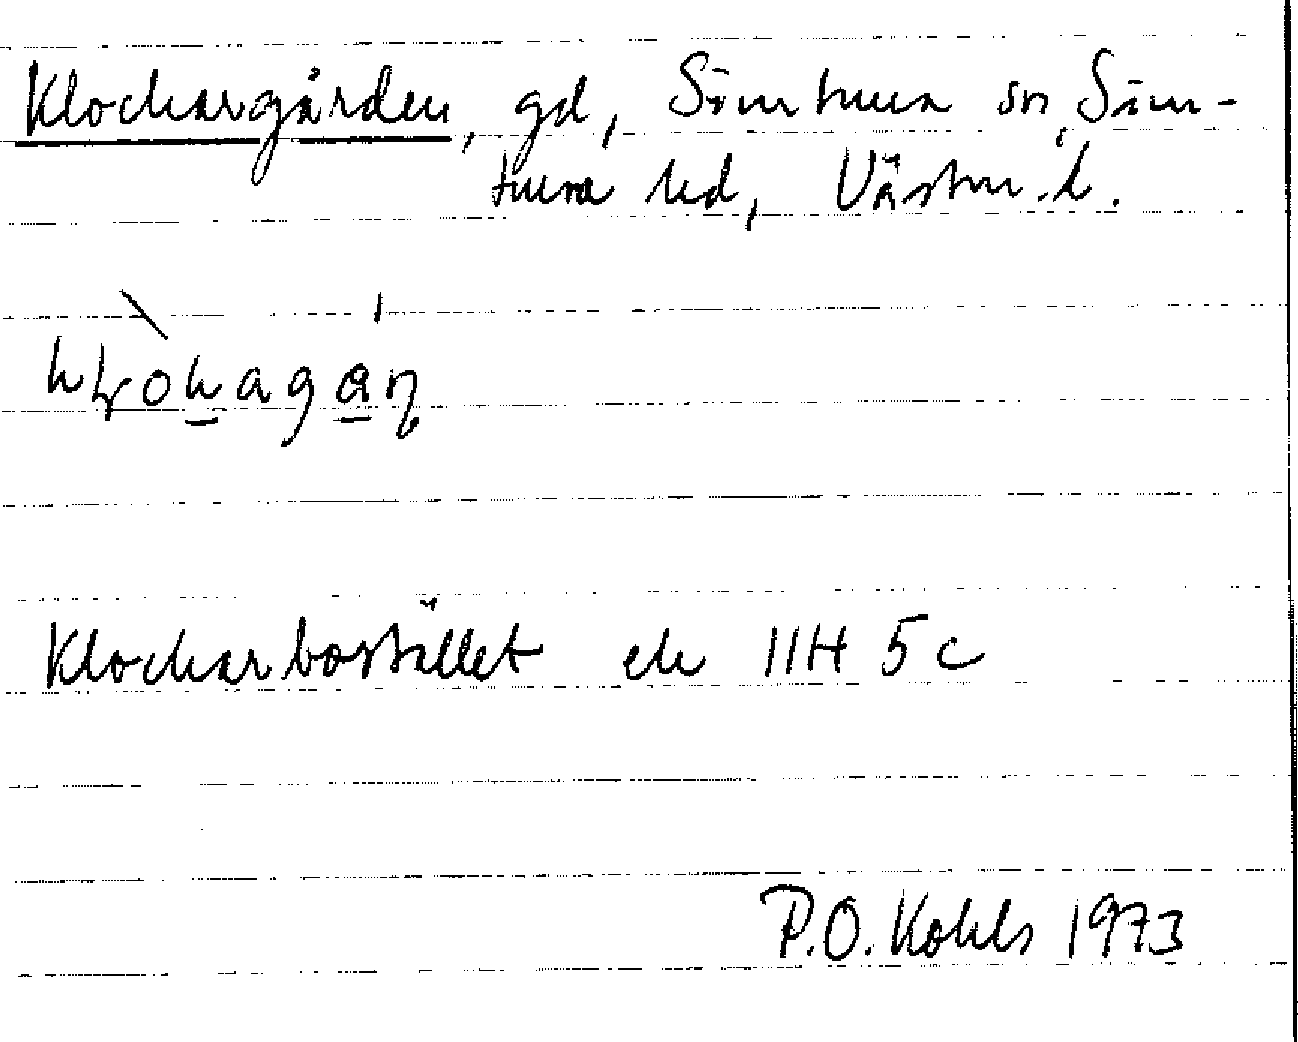 Klockargården, gd, Simtuna sn, Sim-
tuna hd, Västm. l.
Klockarbostället ek 11H 5c
P.O. Kohls 1973